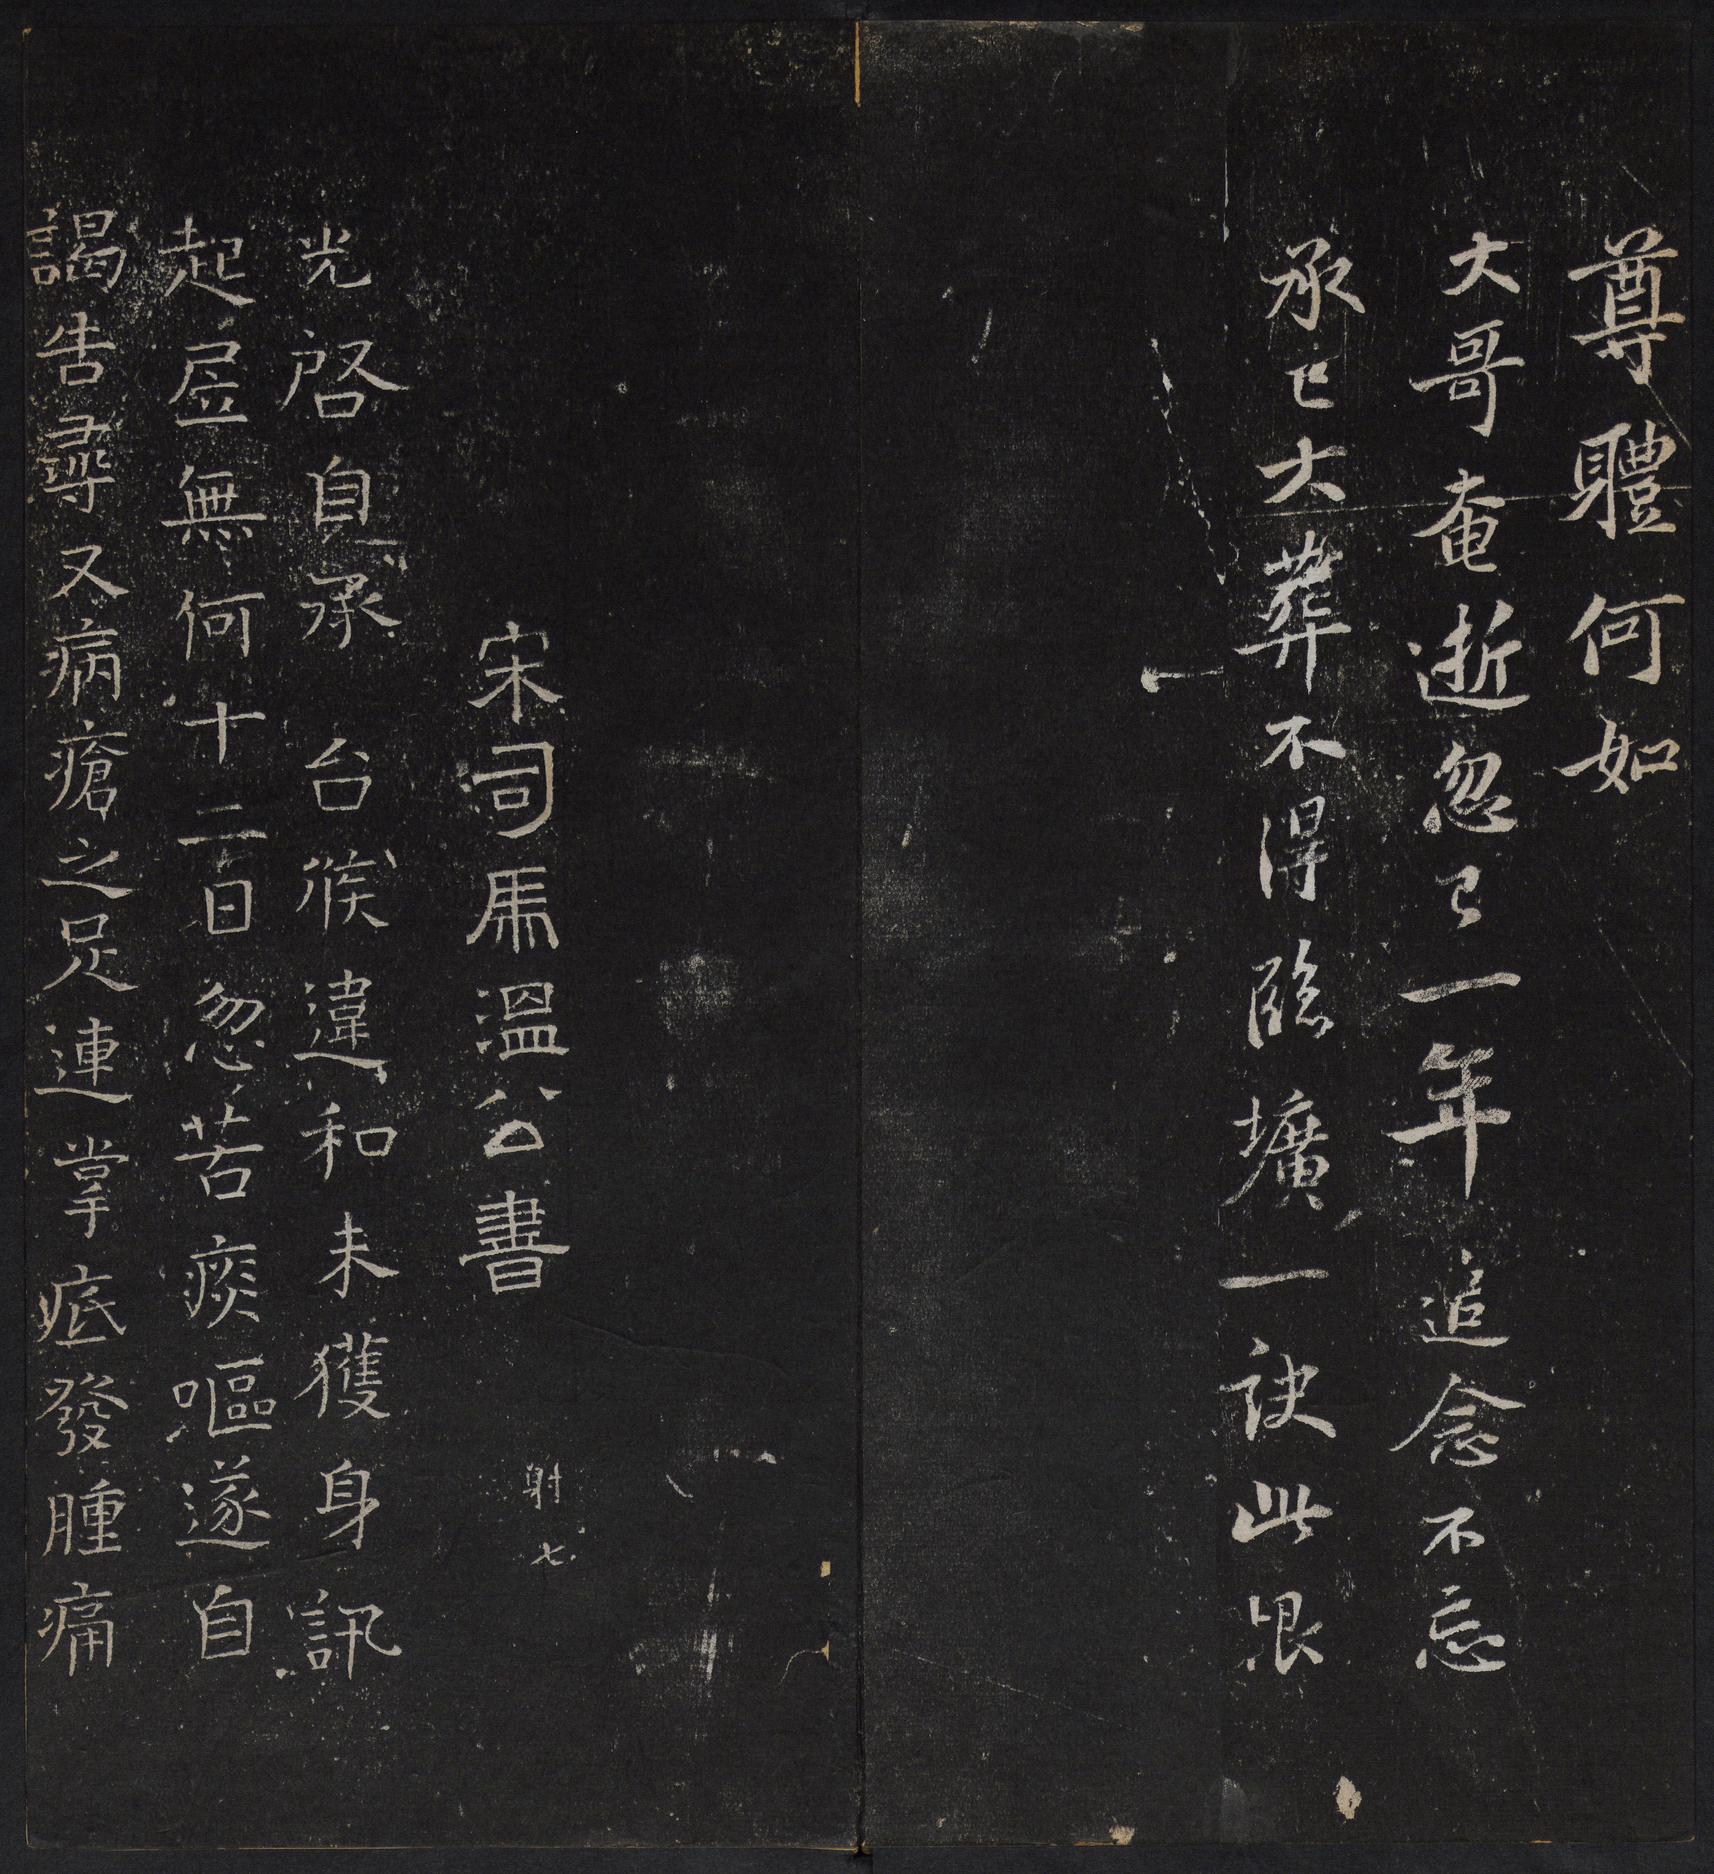 尊體何如
大哥奄逝忽已一年追念不忘
承已大葬不得臨壙一訣此恨
宋司馬溫公書
射七
光啓自承 台候違和未獲身訊
起居無何十二日忽苦痰嘔遂自
謁告尋又病瘡之足連掌底發腫痛